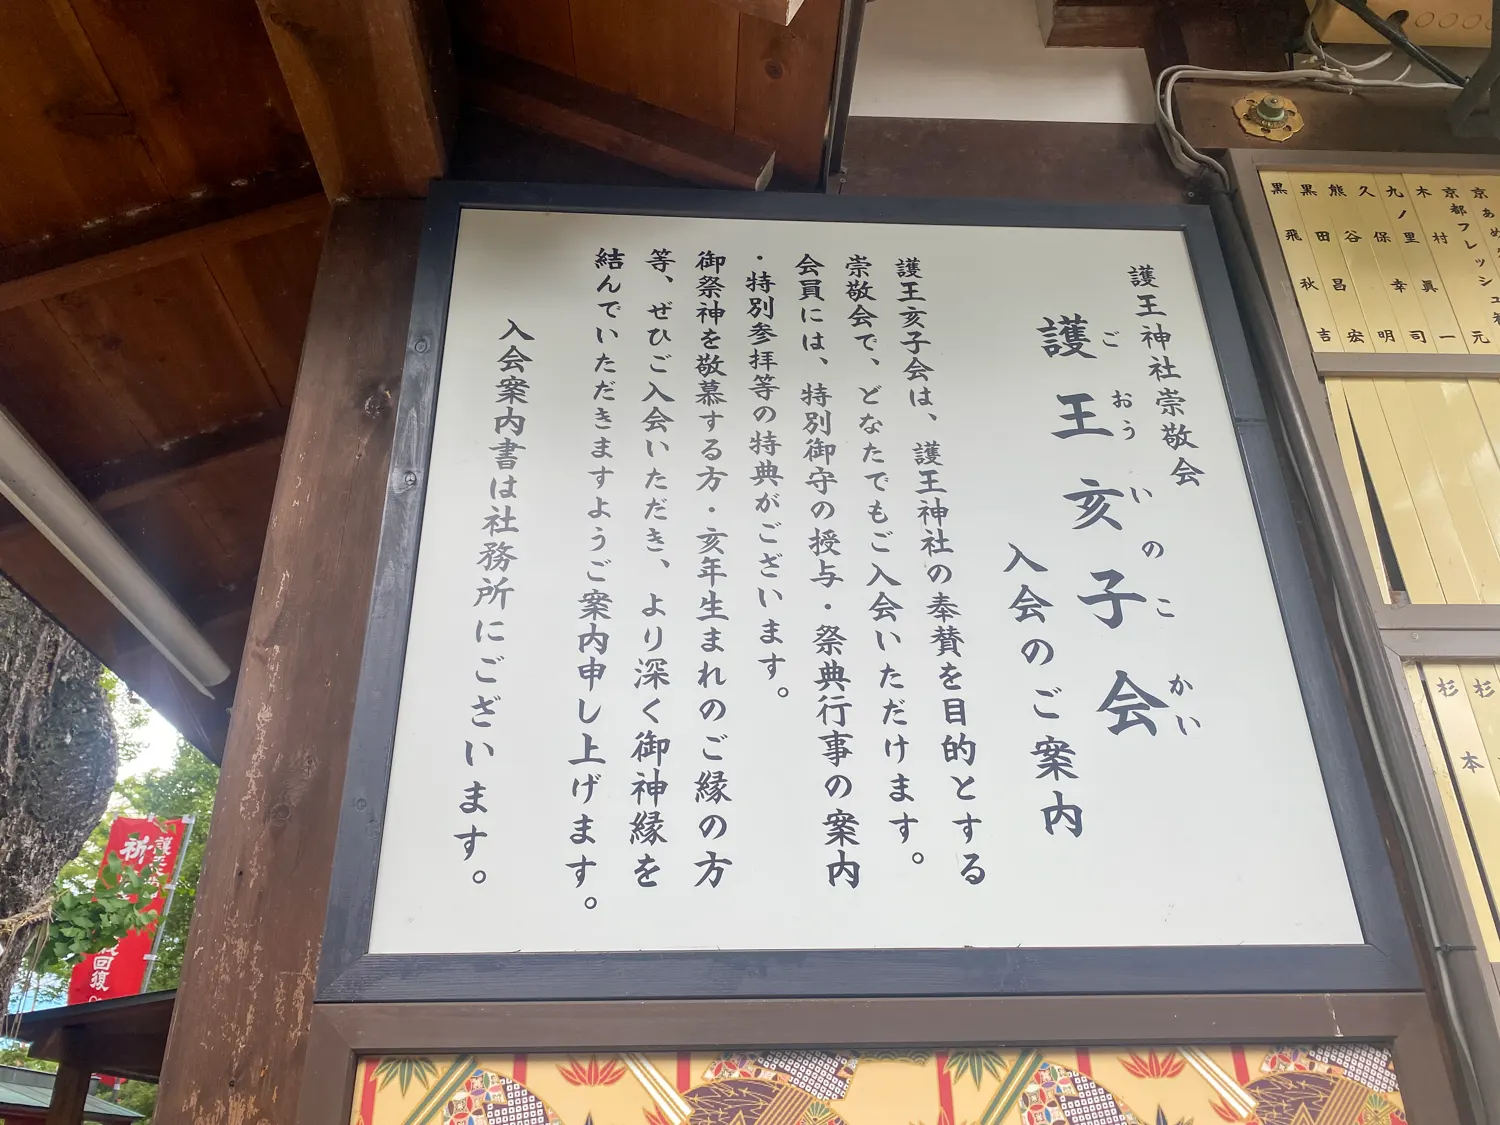 護王神社崇敬会
護王亥子会
ごおういのこかい
入会のご案内
護王亥子会は、護王神社の奉賛を目的とする
崇敬会で、どなたでもご入会いただけます。
会員には、特別御守の授与・祭典行事の案内
・特別参拝等の特典がございます。
御祭神を敬慕する方・亥年生まれのご縁の方
等、ぜひご入会いただき、より深く御神縁を
結んでいただきますようご案内申し上げます。
入会案内書は社務所にございます。
京都フレッシュ
木村眞一
九ノ里幸司
久保明
熊谷昌宏
黒田
黒飛秋吉
杉
杉本
護王
祈
回復